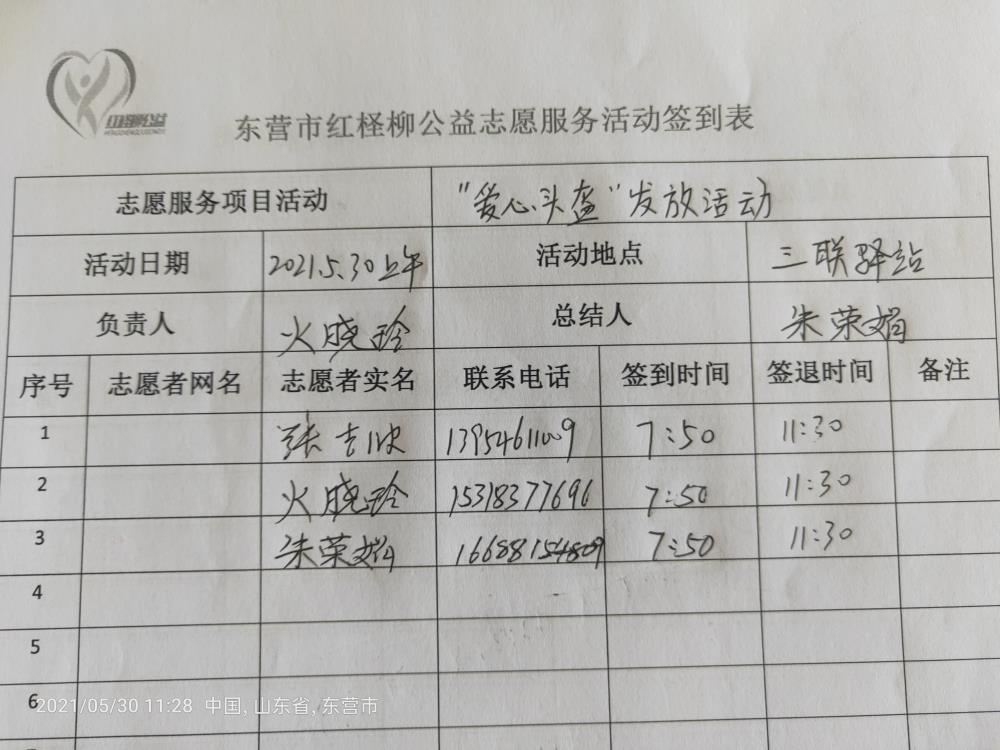 东营市红柽柳公益志愿服务活动签到表
志愿服务项目活动 “爱心头盔”发放活动
活动日期 2021.5.30上午 活动地点 三联驿站
负责人 火晓玲 总结人 朱荣娟
序号 志愿者网名 志愿者实名 联系电话 签到时间 签退时间 备注
1 13954611009 7:50 11:30
2 火晓玲 15318377696 7:50 11:30
3 朱荣娟 16688154809 7:50 11:30
4
5
6
2021/05/30 11:28 中国,山东省,东营市